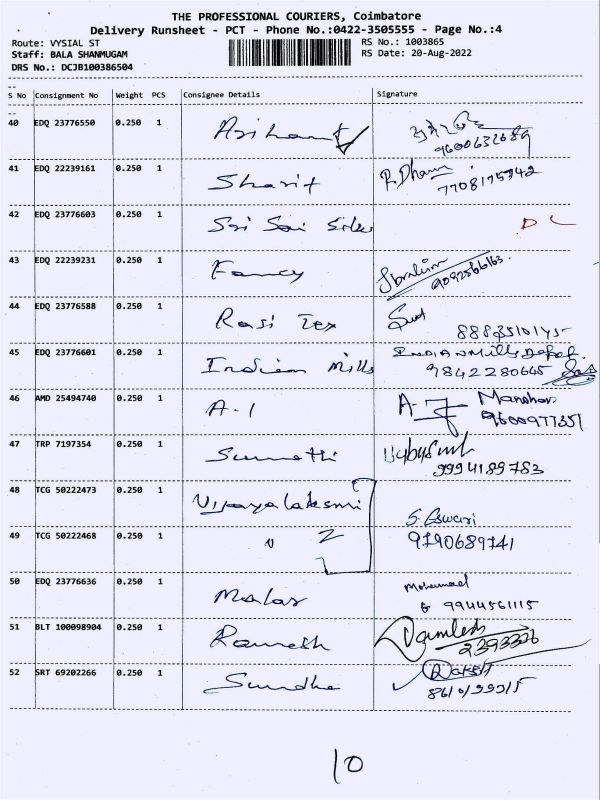 THE PROFESSIONAL COURIERS, Coimbatore
Delivery Runsheet - PCT - Phone No.:0422-3505555 - Page No.:4
Route: VYSIAL ST RS No.: 1003865
Staff: BALA SHANMUGAM RS Date: 20-Aug-2022
DRS No.: DCJB100386504
S No Consignment No Weight PCS Consignee Details Signature
40 EDQ 23776550 0.250 1 Arihant
9600632689
41 EDQ 22239161 0.250 1 Sharif R. Dharm
7708175942
42 EDQ 23776603 0.250 1 Sri Sai Silks D L
43 EDQ 22239231 0.250 1 Fancy Ibrahim
9092566163
44 EDQ 23776588 0.250 1 Rasi Tex
8883510145
45 EDQ 23776601 0.250 1 Indian Mills INDIAN Mills Depot
9842280645
46 AMD 25494740 0.250 1 A-1 A-J Manohar
9600977351
47 TRP 7197354 0.250 1 Sumathi
9994189783
48 TCG 50222473 0.250 1 Vijayalaksmi
S. Eswari
49 TCG 50222468 0.250 1 " 2 9790689741
50 EDQ 23776636 0.250 1 Malar Mohamed
9944561115
51 BLT 100098904 0.250 1 Ramesh
2393326
52 SRT 69202266 0.250 1 Sundha
10